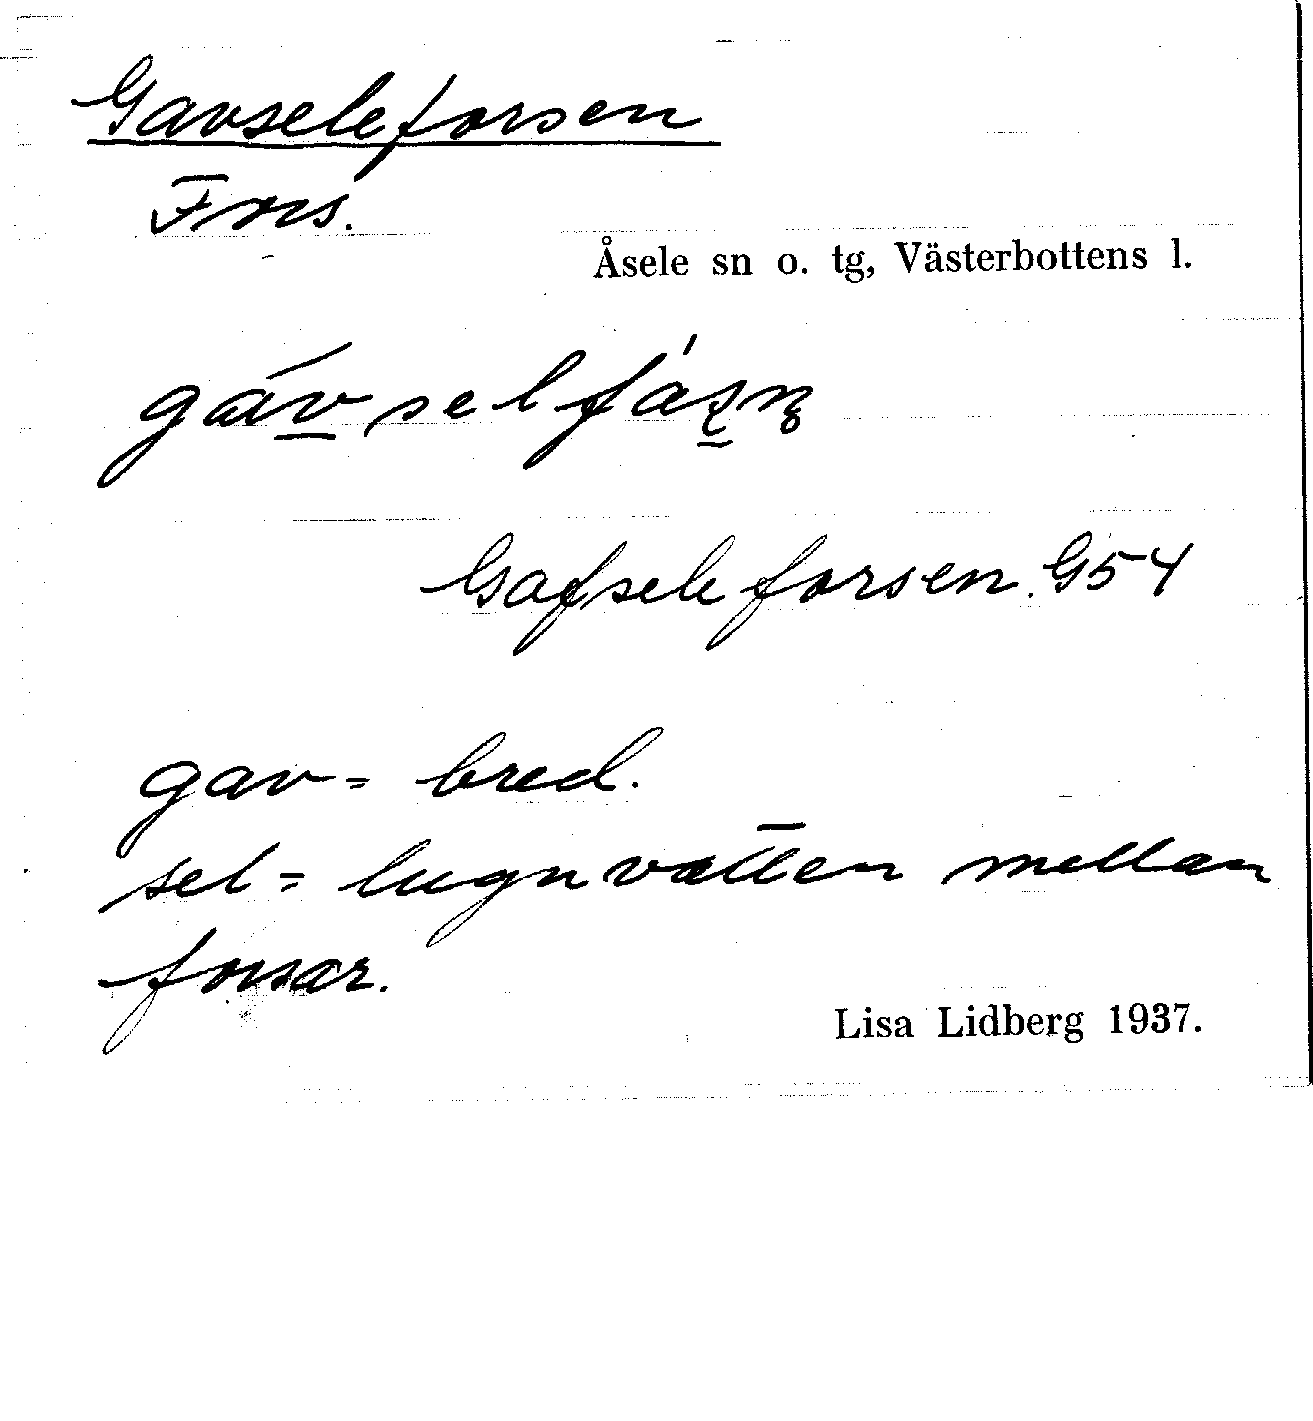 Gavseleforsen
Fors.
Åsele sn o. tg, Västerbottens l.
Gafseleforsen. G54
gav = bred.
sel = lugnvatten mellan
forsar.
Lisa Lidberg 1937.